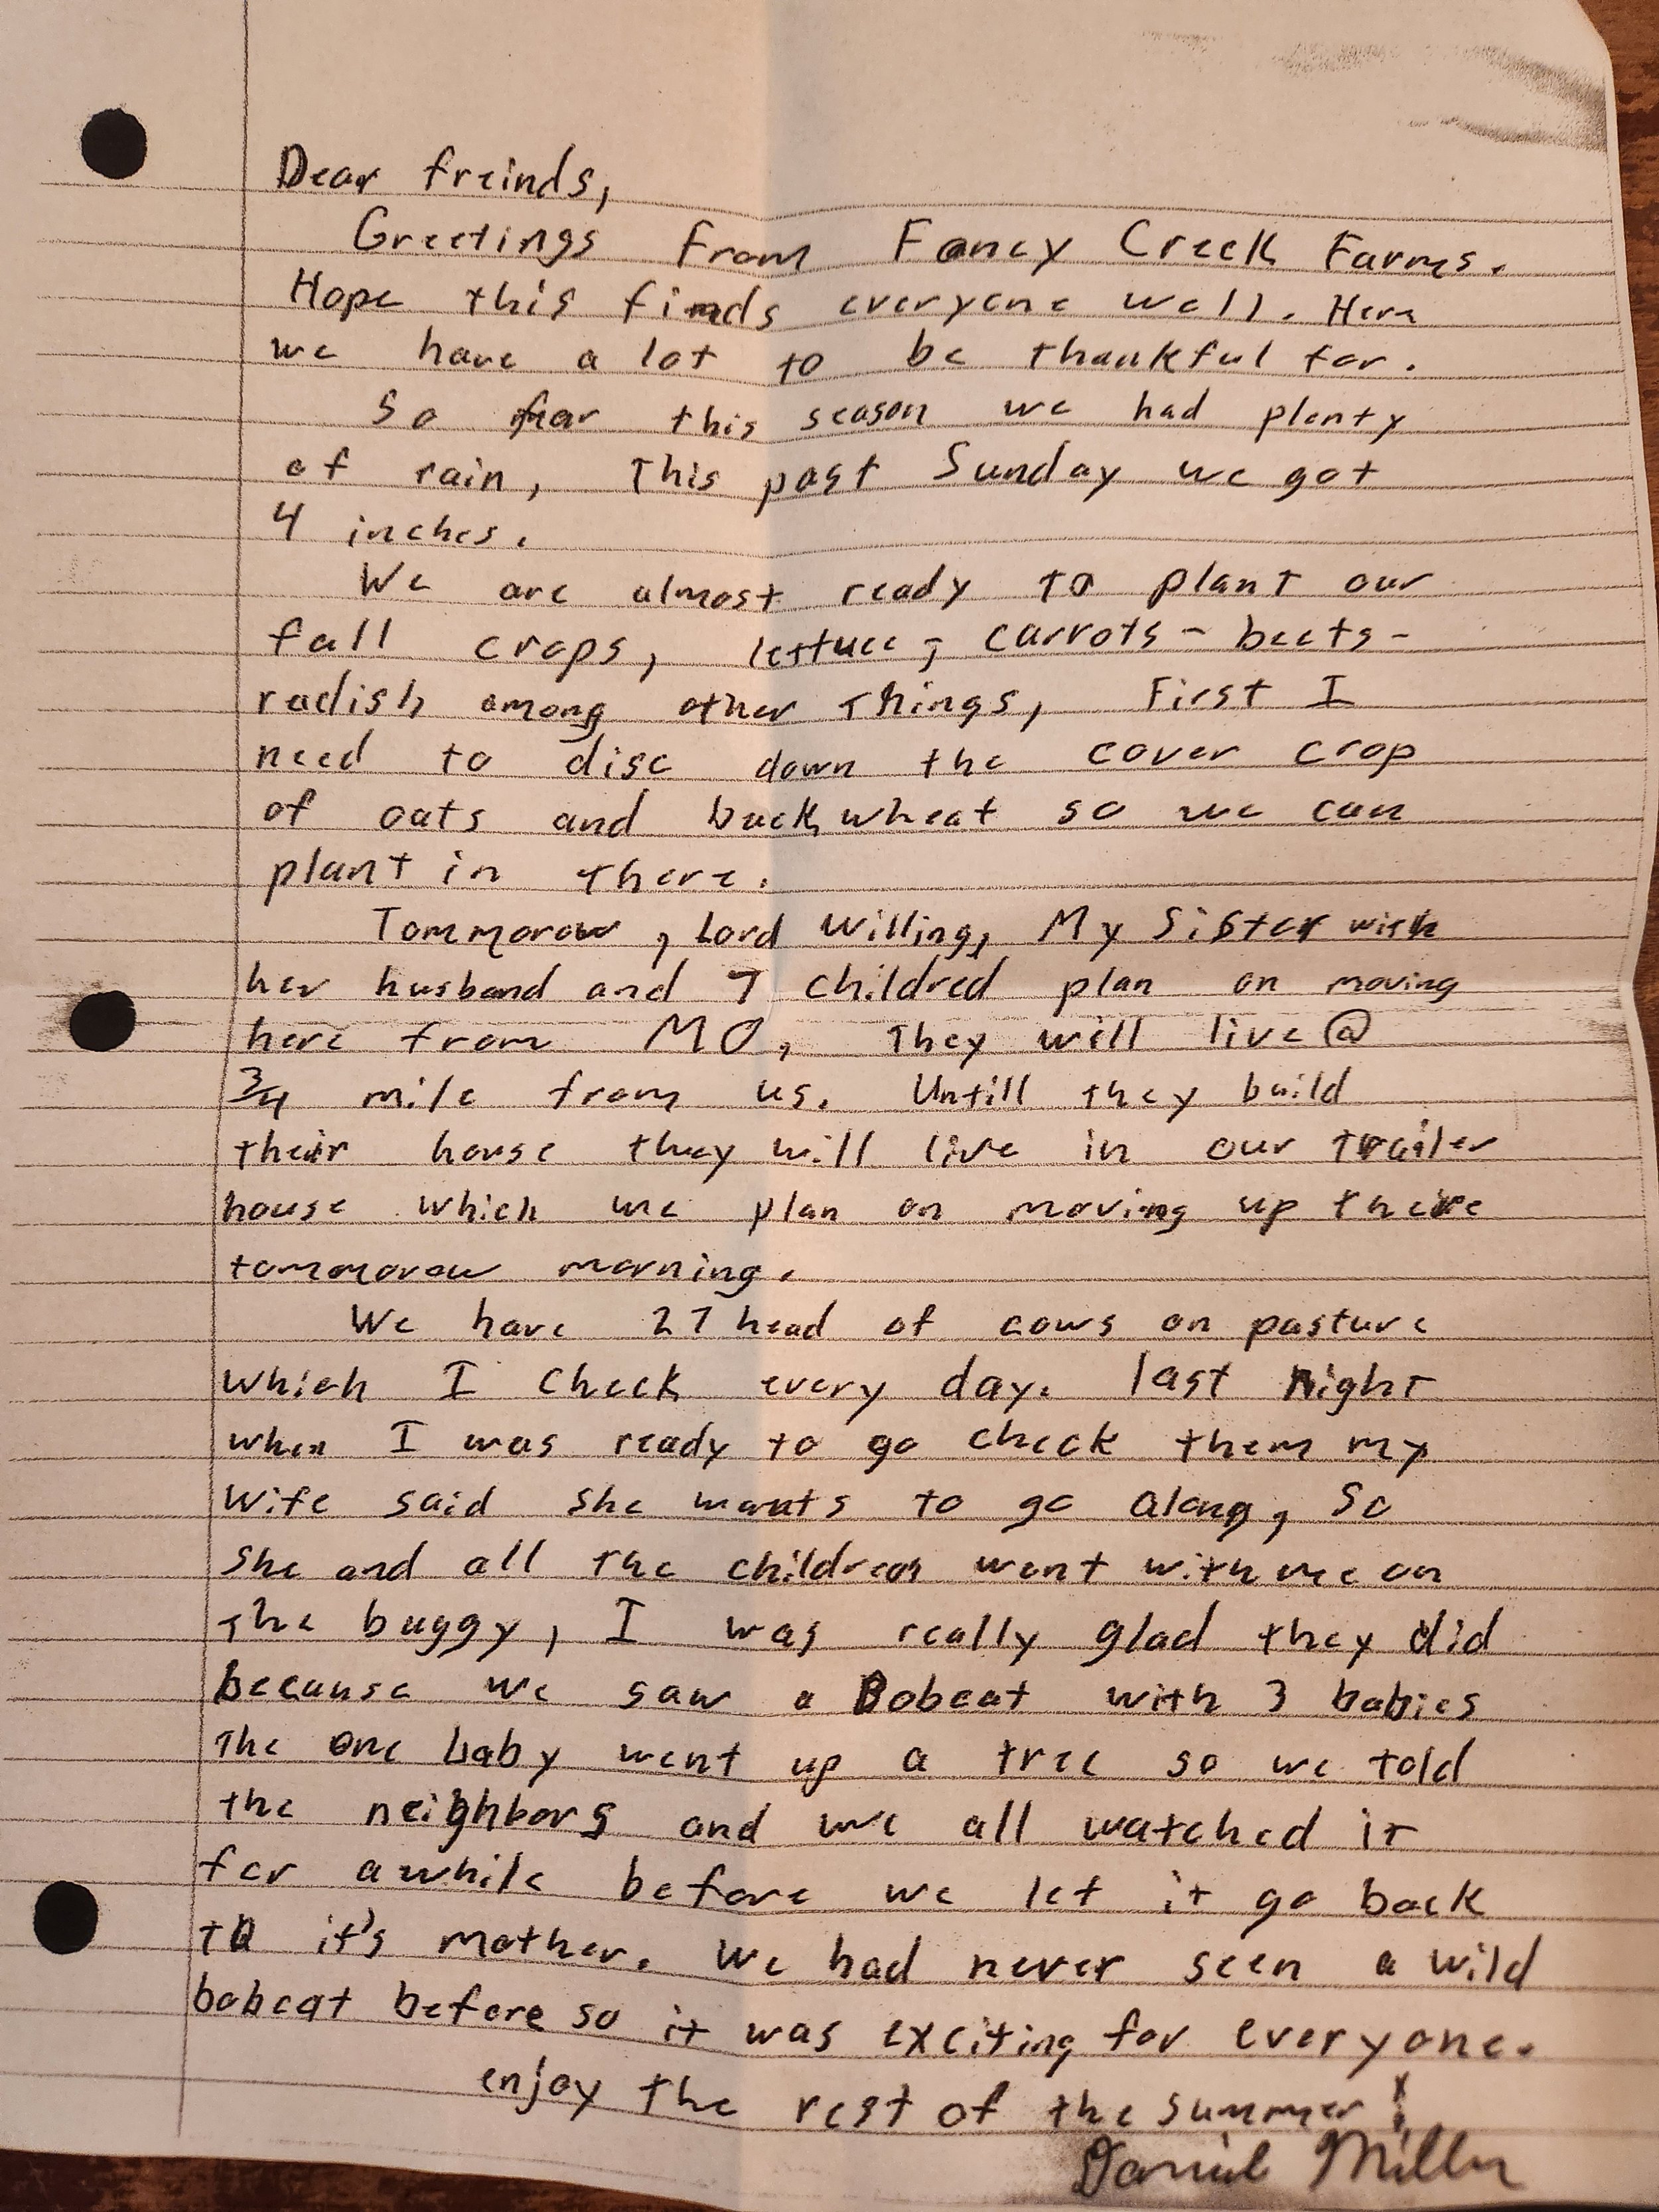 Dear freinds,
Greetings From Fancy Creek Farms.
Hope this finds everyone well. Here
we have a lot to be thankful for.
So far this season we had plenty
of rain, This past Sunday we got
4 inches.
We are almost ready to plant our
fall crops, lettuce, carrots - beets -
radish among other things, First I
need to disc down the cover crop
of oats and buckwheat so we can
plant in there.
Tommorow, Lord Willing, My Sister with
her husband and 7 childred plan on moving
here from MO, They will live @
3/4 mile from us. Untill they build
their house they will live in our trailer
house which we plan on moving up there
tommorow morning.
We have 27 head of cows on pasture
which I check every day. last Night
when I was ready to go check them my
wife said she wants to go along, So
she and all the children went with me on
the buggy, I was really glad they did
because we saw a Bobcat with 3 babies
The one baby went up a tree so we told
the neighbors and we all watched it
for awhile before we let it go back
to it's mother. We had never seen a wild
bobcat before so it was exciting for everyone.
enjoy the rest of the summer!
Daniel Miller